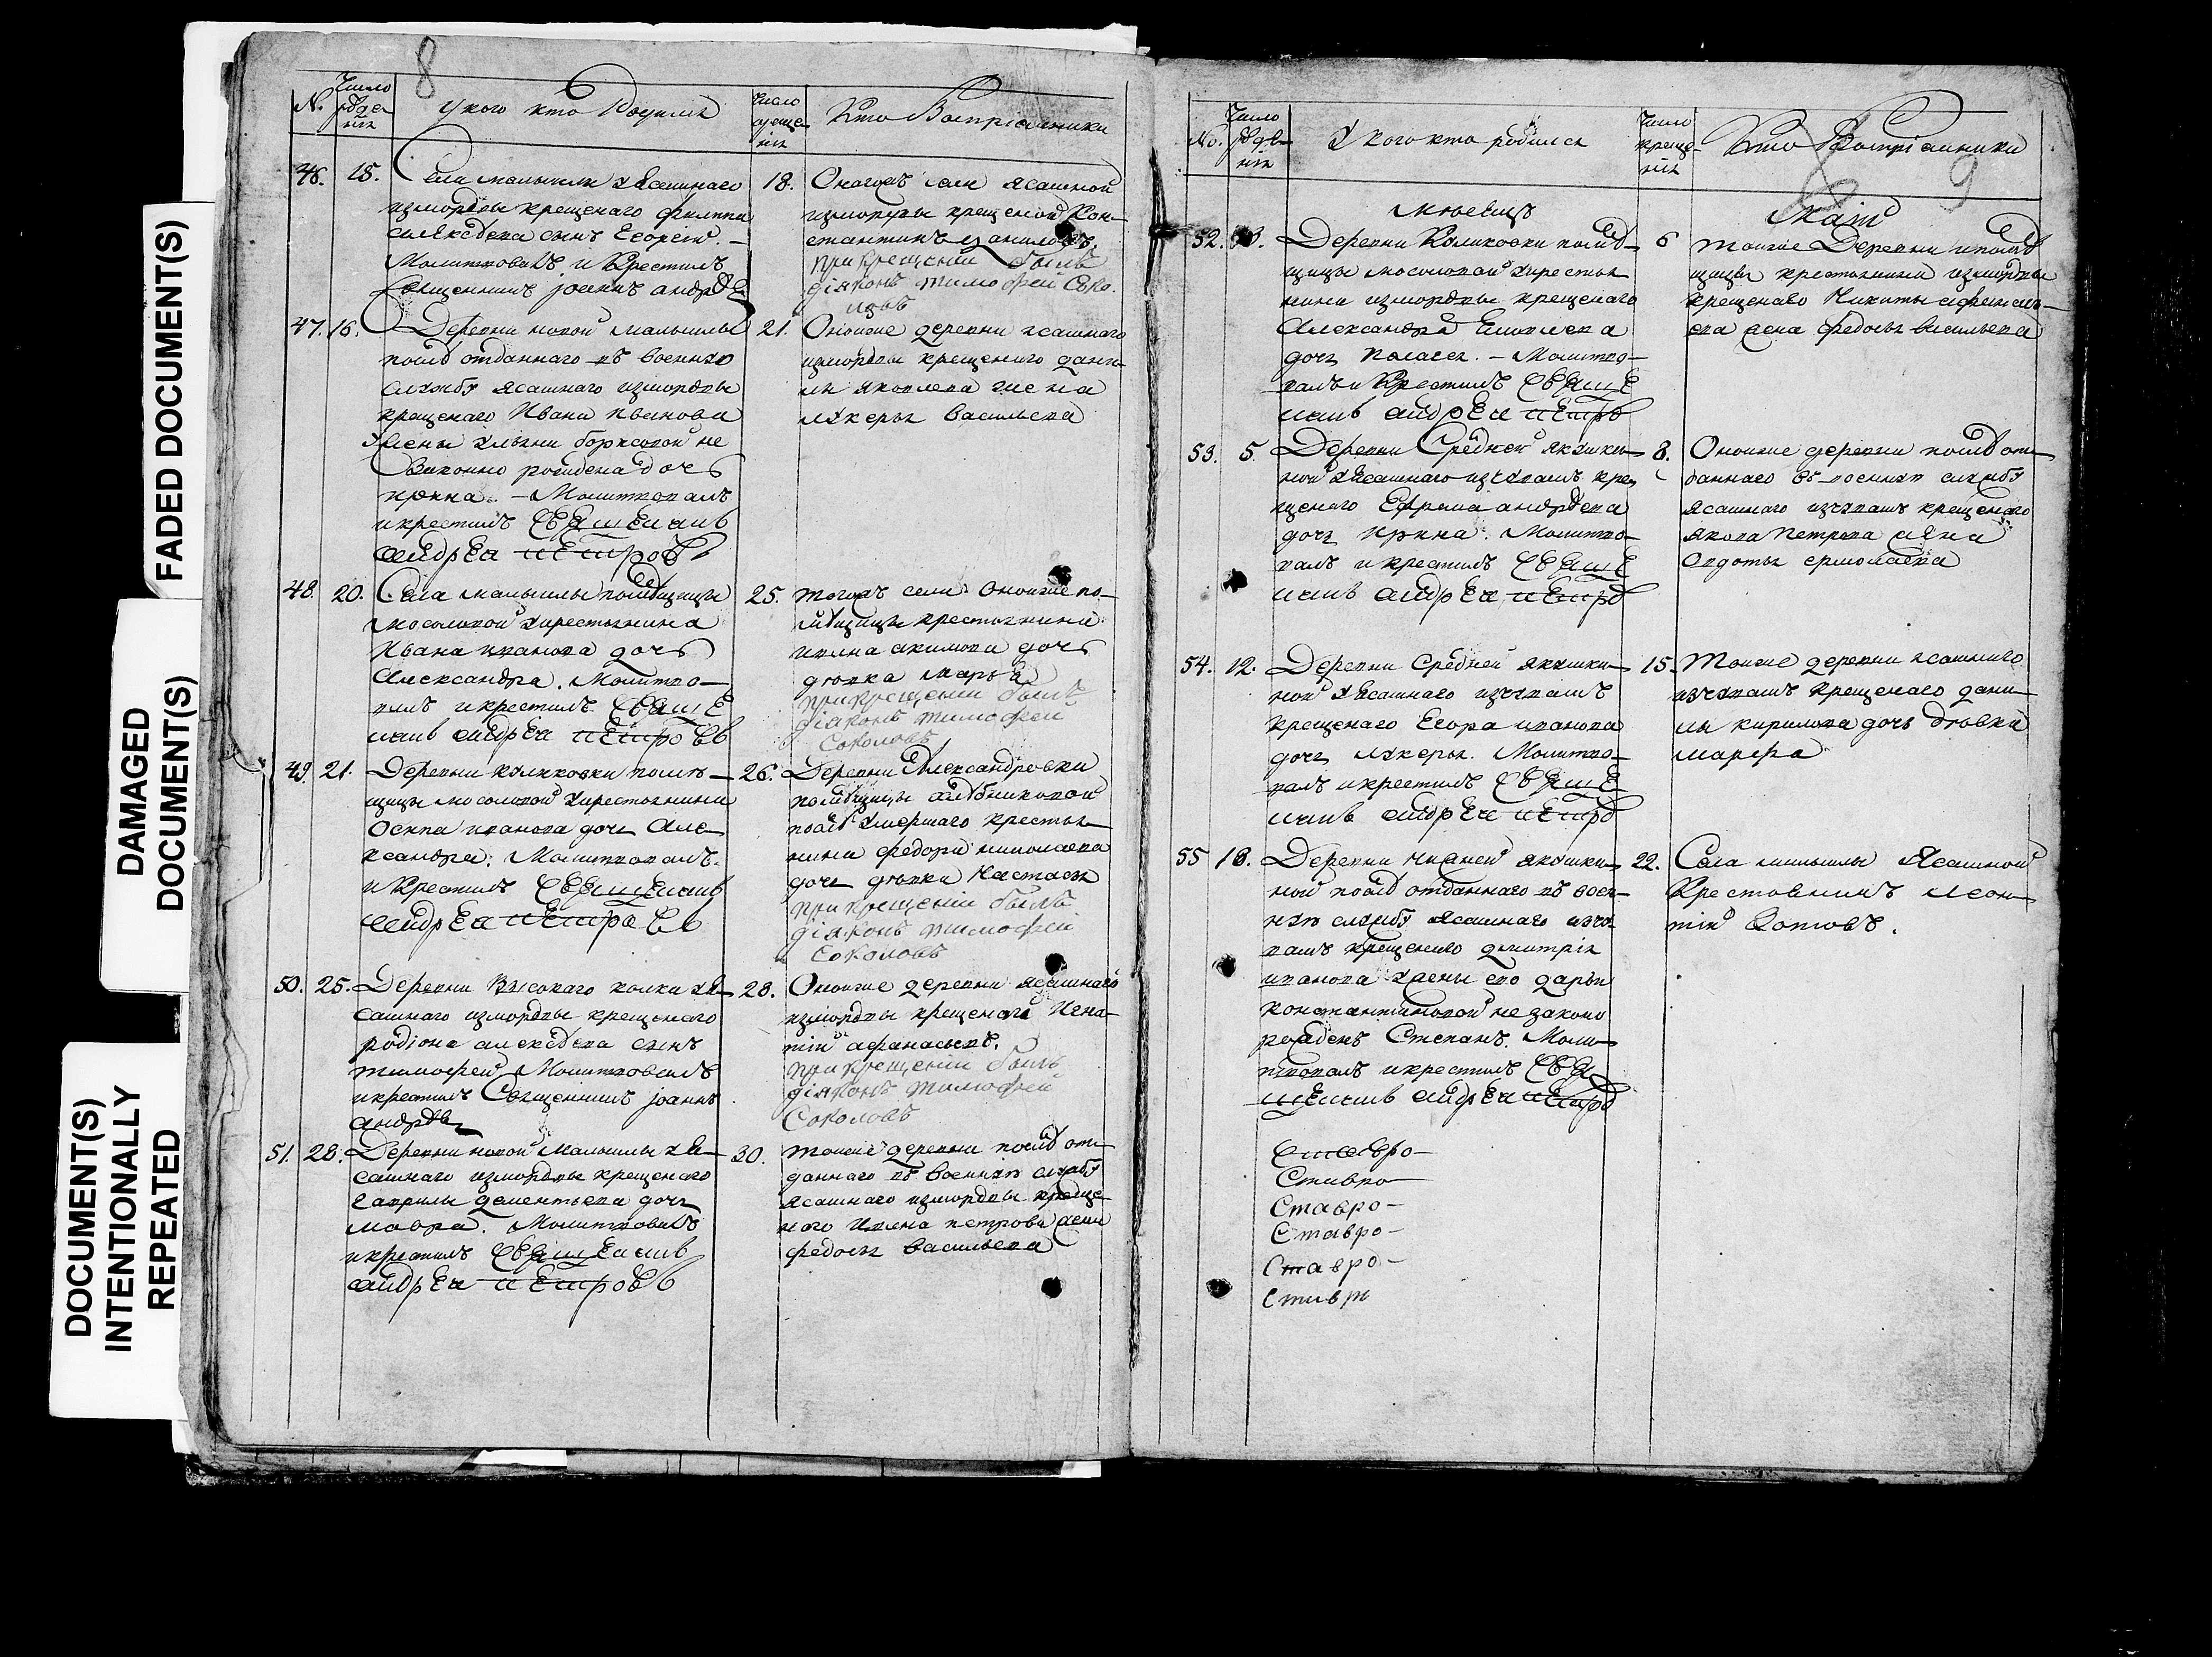 FADED DOCUMENT(S)
DAMAGED
DOCUMENT(S)
DOCUMENT(S)
INTENTIONALLY
REPEATED
8
№.
Число
рождения
У кого кто Родился
Число
крещения
Кто Восприемники
46.
15.
Села малыклы у Ясашнаго
измордвы крещенаго филиппа
алексѣева сынъ Георгий. –
Молитвовалъ и Крестилъ
Священникъ Iоаннъ андрѣевъ
18.
Оногожъ села Ясашной
измордвы крещеной Кон–
стантинъ даниловъ.
при крещении былъ
дiаконъ тимофей Соко–
ловъ
47.
16.
Деревни новой малыклы
послѣ отданнаго въ военную
службу Ясашнаго измордвы
крещенаго Ивана Иванова
жены ульяны борисовой не
законно рождена дочь
ирина. – Молитвовалъ
и крестилъ Священникъ
андрей петровъ
21.
Оноиже деревни ясашнаго
измордвы крещенаго дани–
лы яковлева жена
лукерья васильева
48.
20.
Села малыклы помѣщицы
мосоловой у крестьянина
Ивана иванова дочь
Александра. Молитво–
валъ и крестилъ Свяще
нникъ андрей петровъ
25.
тогожъ села оноиже по–
мѣщицы крестьянина
ивана акимова дочь
девка марья
при крещении былъ
дiаконъ тимофей
Соколовъ
49.
21.
Деревни куликовки помѣ–
щицы мосоловой у крестьянина
Осипа иванова дочь Але–
ксандра. Молитвовалъ
и Крестилъ Священникъ
андрей петровъ
26.
Деревни Александровки
помѣщицы хлѣбниковой
послѣ умершаго крестья–
нина федора николаева
дочь девка Настасья
при крещении былъ
дiаконъ тимофей
Соколовъ
50.
25.
Деревни Высокаго колка у Я–
сашнаго измордвы крещенаго
родiона алексѣева сынъ
тимофей. Молитвовалъ
и крестилъ Священникъ Iоаннъ
андрѣевъ
28.
Оноиже деревни ясашнаго
измордвы крещенаго Игна–
тiй афанасьевъ.
при крещении былъ
дiаконъ тимофей
Соколовъ
51.
28.
Деревни новой малыклы у Я–
сашнаго измордвы крещенаго
гаврилы дементьева дочь
мавра. Молитвовалъ
и крестилъ Священникъ
андрей петровъ
30.
тоиже деревни послѣ от–
даннаго въ военную службу
Ясашнаго измордвы креще–
наго Ивана петрова жена
федосья васильева
9
№.
Число
рождения
У кого кто родился
Число
крещения
Кто Восприемники
мѣсяцъ
Маiй
52.
Деревни Куликовки помѣ–
щицы мосоловой у крестья–
нина измордвы крещенаго
Александра
дочь пелагея. – Молитво–
валъ и Крестилъ Священ
никъ андрей петровъ
6
тоиже Деревни и помѣ–
щицы крестьянина измордвы
крещенаго Никиты
жена федосья васильева
53.
5.
Деревни Средней якушки–
ной у Ясашнаго изчувашъ кре–
щенаго Ефрема андрѣева
дочь Ирина. Молитво–
валъ и крестилъ Священ
никъ андрей петровъ
8.
Оноиже деревни послѣ от–
даннаго въ военную службу
Ясашнаго изчувашъ крещенаго
якова петрова жена
Овдотья ермолаева
54.
12.
Деревни Средней якушки–
ной у Ясашнаго изчувашъ
крещенаго Егора иванова
дочь лукерья. Молитво–
валъ и крестилъ Священ
никъ андрей петровъ
15.
Тоиже деревни ясашнаго
изчувашъ крещенаго дани–
лы кирилова дочь девка
марфа
55
18.
Деревни нижней якушки–
ной послѣ отданнаго въ воен–
ную службу ясашнаго изчу–
вашъ крещенаго димитрiя
иванова у жены его дарьи
константиновой не законо
рожденъ Степанъ. Моли–
твовалъ и крестилъ Свя
щенникъ андрей петровъ
22.
Села малыклы Ясашной
Крестьянинъ леон–
тiй Котовъ.
Ставро–
Ставро–
Ставро–
Ставро–
Ставро–